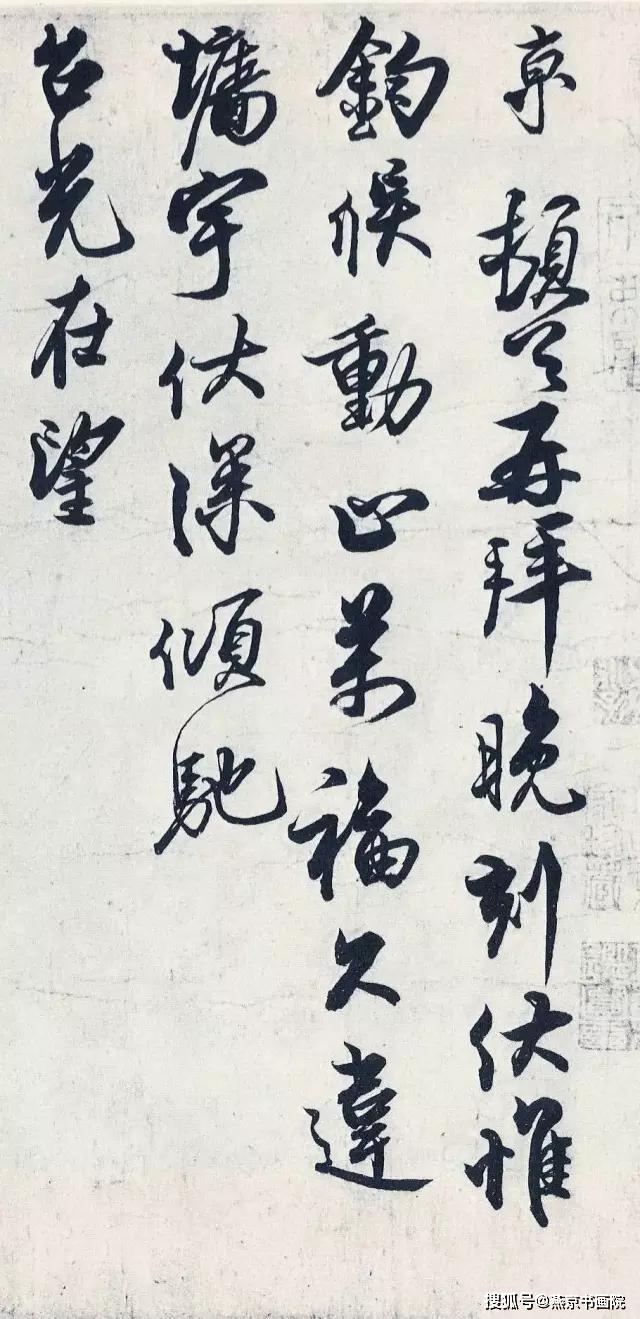 京 頓首再拜晚刻伏惟
鈞候動止萬福久違
墻宇伏深傾馳
台光在望
搜狐号@燕京书画院